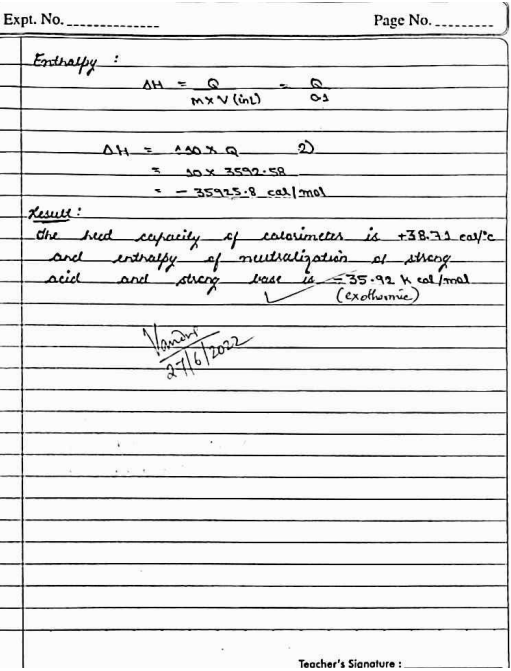 Expt. No.
Page No.
Enthalpy :
ΔH = Q / M×V (inL) = Q / 0.1
ΔH = 10 × Q
= 10 × 3592.58
= - 35925.8 cal/mol
Result :
The heat capacity of calorimeter is +38.71 cal/°c
and enthalpy of neutralization of strong
acid and strong base is -35.92 k cal/mol
(exothermic)
27/6/2022
Teacher's Signature :